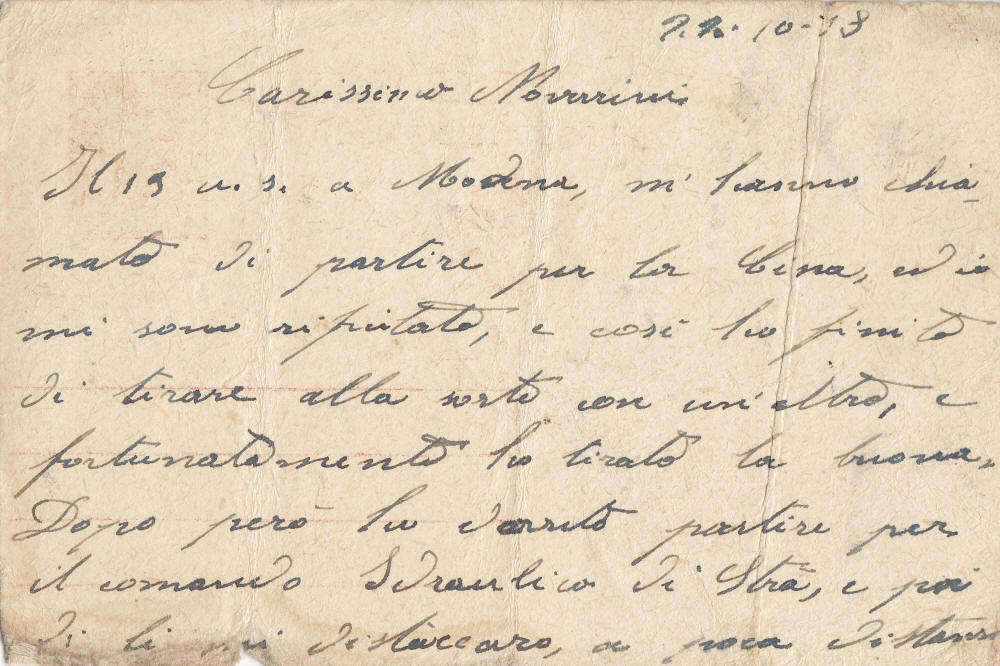 22-10-18
Carissimo Novarini
Il 19 u. s. a Modena, m' hanno chia-
mato di partire per la Cina, ed io
mi sono rifiutato, e così ho finito
di tirare alla sorte con un'altro, e
fortunatamente ho tirato la buona.
Dopo però ho dovuto partire per
il comando Idraulico di Strà, e poi
di li mi distaccaro, a poca distanz